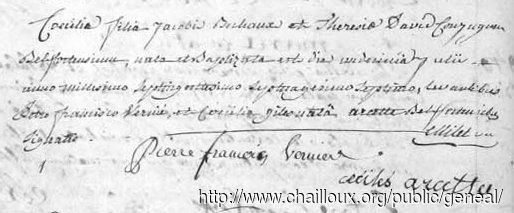 Cœcilia filia Jacobi Buchaux et Theresiæ David Conjugum
Belfortensium, nata et Baptizata est die undecima Julii
anno millesimo septingentesimo septuagesimo septimo, Levantibus
Petro Francisco Vernié, et Cœcilia arcette Belfortensibus
signatis
pierre francois Vernier
cecile arcette
http://www.chailloux.org/public/geneal/